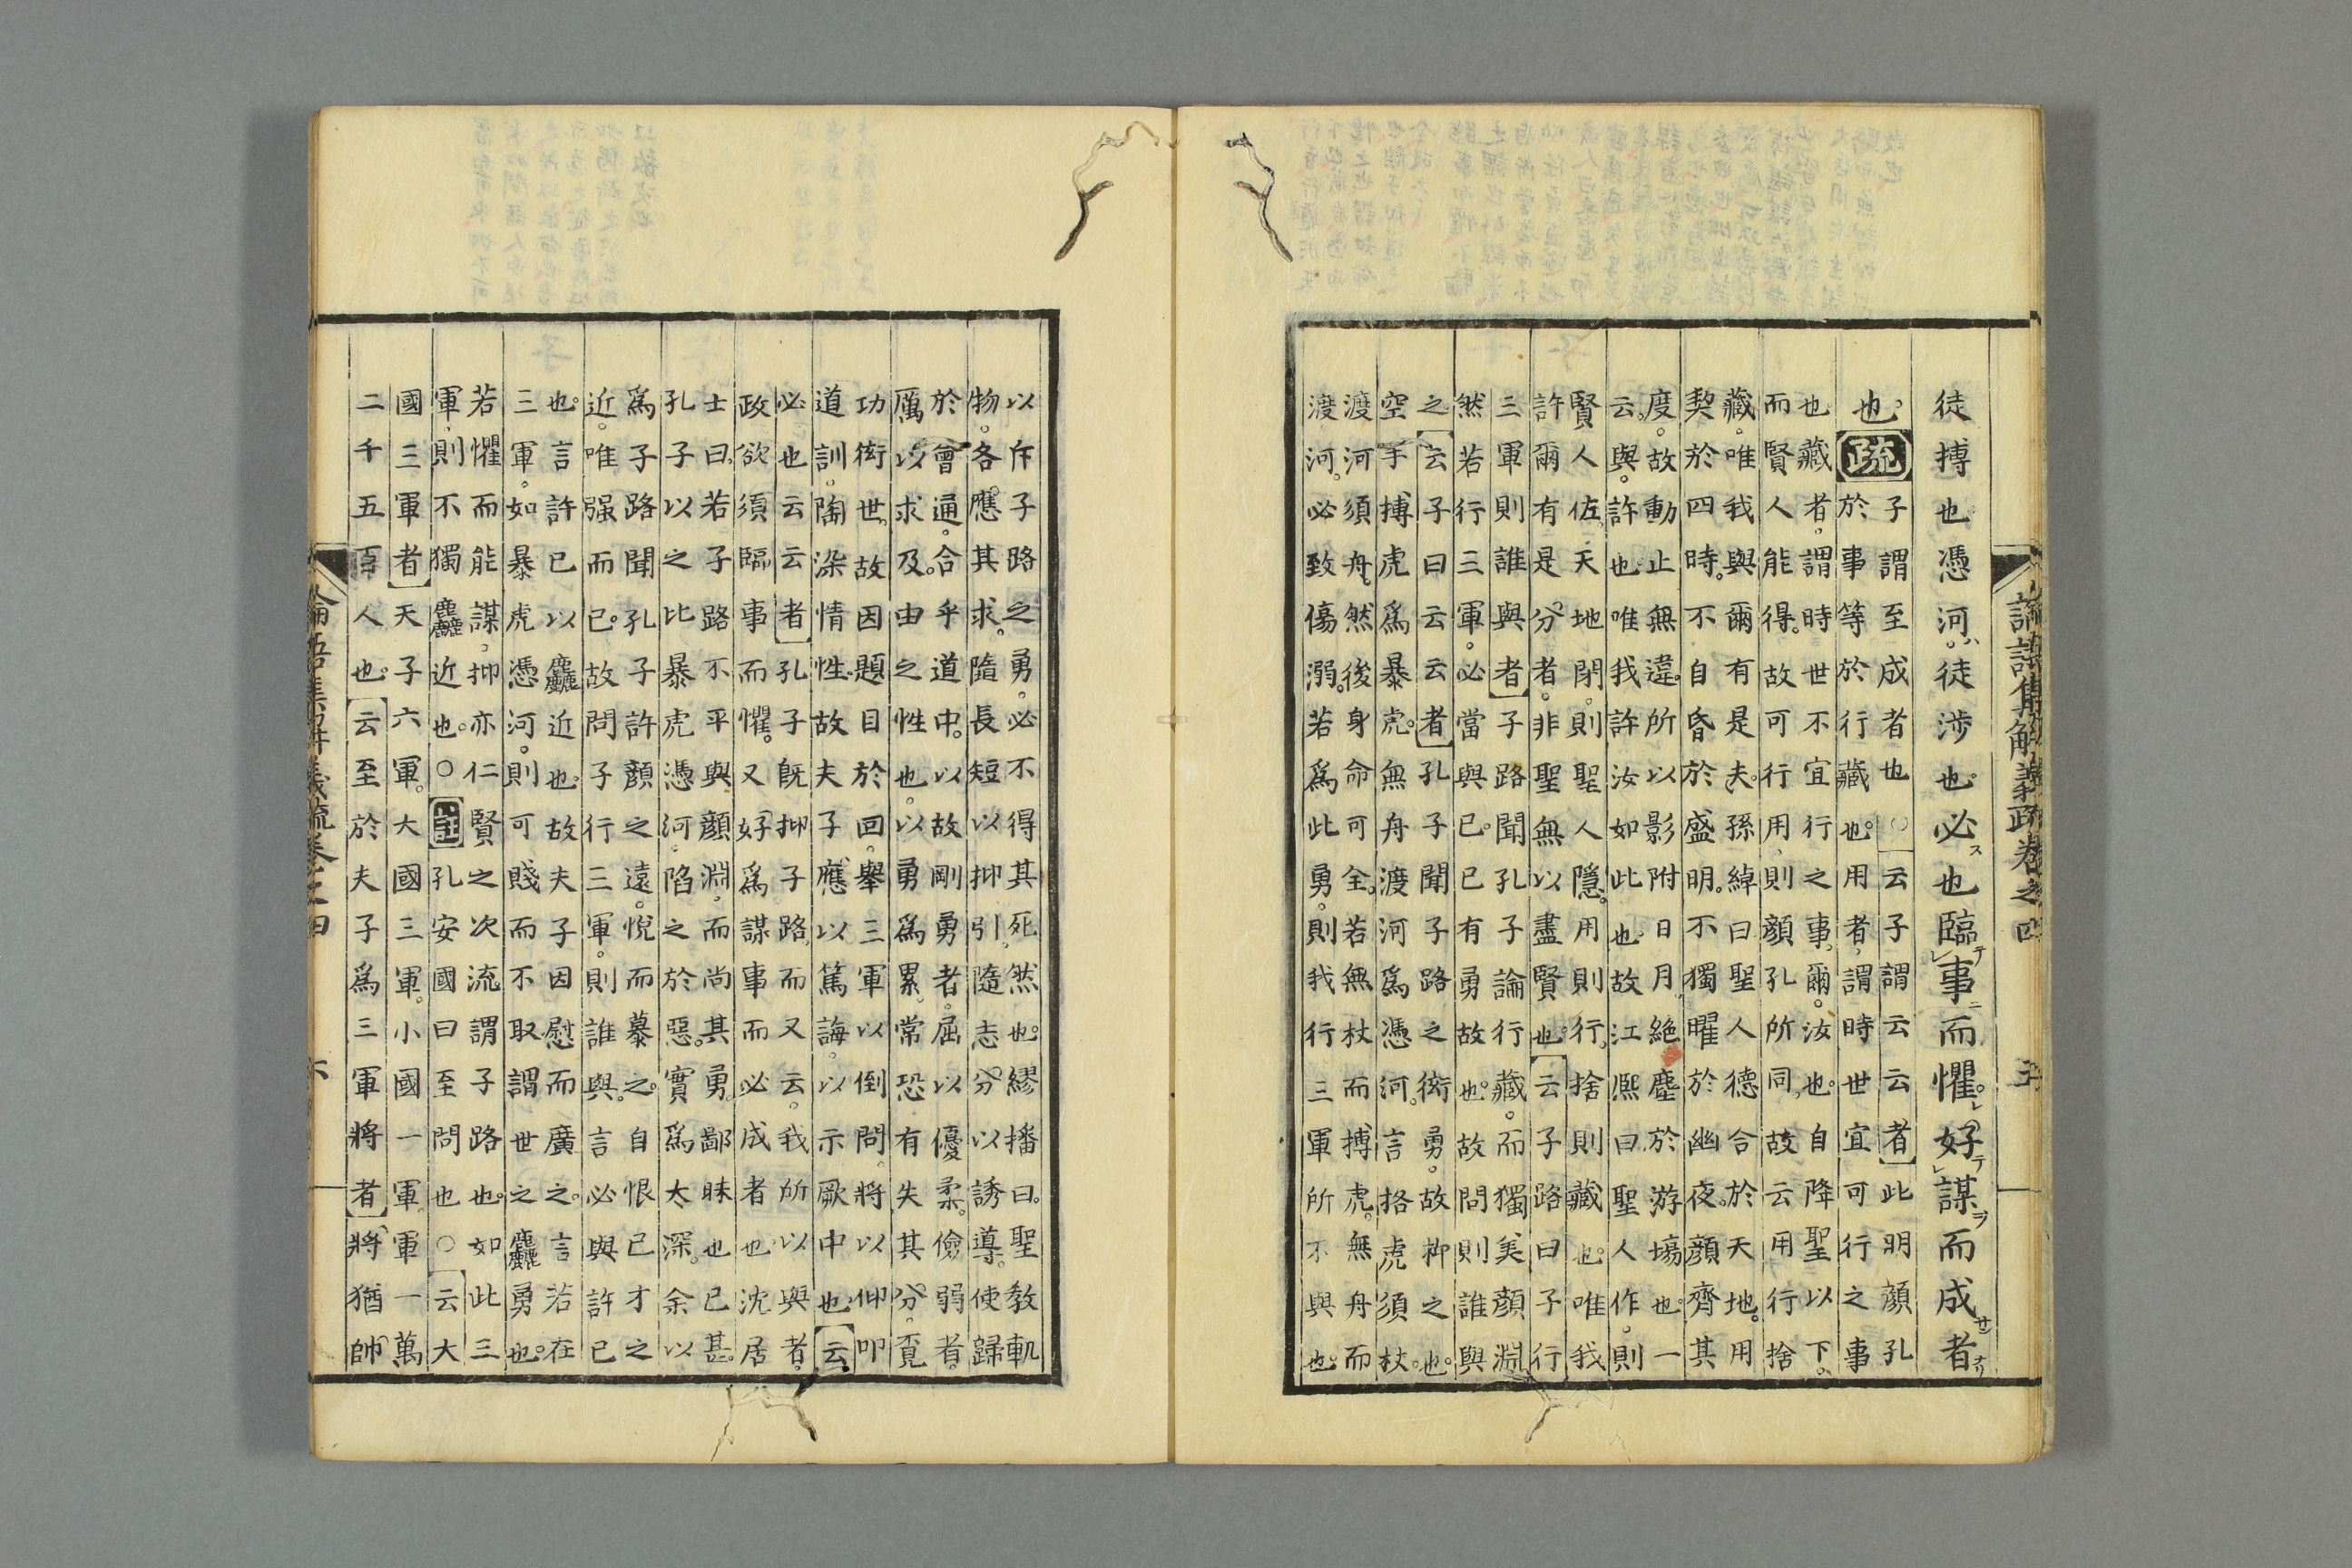 論語集解義疏卷之四 五
徒搏也憑河。ハ徒涉也。必ス也臨テレ事ニ而懼。レ好テレ謀ヲ而成サン者ナリ
也。疏
子謂至成者也○[云子謂云云者]此明顏孔
於事等於行藏也。用者謂時世宜可行之事
也藏者。謂時世不宜行之事。爾。汝也。自降聖以下。
而賢人能得。故可行用、則顏孔所同、故云用行捨
藏。唯我與爾有是夫。孫綽曰聖人德合於天地。用
契於四時。不自昏於盛明。不獨曜於幽夜。顏齊其
度。故動止無違。所以影附日月。絕塵於游塲也。一
云。與。許也。唯我許汝如此也。故江熙曰聖人作。則
賢人佐。天地閉。則聖人隱。用則行。捨則藏也。唯我
許爾有是分者。非聖無以盡賢也。[云子路曰子行
三軍則誰與者]子路聞孔子論行藏。而獨美顏淵
然若行三軍。必當與己。已有勇故也。故問則誰與
之[云子曰云云者]孔子聞子路之衒勇。故抑之也。
空手搏虎爲暴虎。無舟渡河爲憑河。言挌虎須杖。
渡河須舟。然後身命可全。若無杖而搏虎。無舟而
渡河。必致傷溺。若爲此勇。則我行三軍所不與也。
以斥子路之勇。必不得其死然也。繆播曰。聖教軌
物。各應其求。隨長短以抑引。隨志分以誘導。使歸
於會通。合乎道中。以故剛勇者。屈以優柔。儉弱者。
厲以求及。由之性也。以勇爲累。常恐有失其分。覓
功衒世。故因題目於回。舉三軍以倒問。將以仰叩
道訓。陶染情性。故夫子應以篤誨。以示厥中也。[云
必也云云者]孔子既抑子路而又云。我所以與者。
政欲須臨事而懼。又好爲謀事而必成者也。沈居
士曰。若子路不平與顏淵。而尚其勇。鄙昧也已甚。
孔子以之比暴虎憑河。陷之於惡。實爲太深。余以
爲子路聞孔子許顏之遠。悅而慕之。自恨己才之
近。唯强而已。故問子行三軍。則誰與。言必與許己
也。言許己以麤近也。故夫子因慰而廣之。言若在
三軍。如暴虎憑河。則可賤而不取謂世之麤勇也。
若懼而能謀。抑亦仁賢之次流謂子路也。如此三
軍、則不獨麤近也。○註孔安國曰至問也○[云大
國三軍者]天子六軍。大國三軍。小國一軍。軍一萬
二千五百人也。[云至於夫子爲三軍將者]將猶帥
論語集解義疏卷之四 六